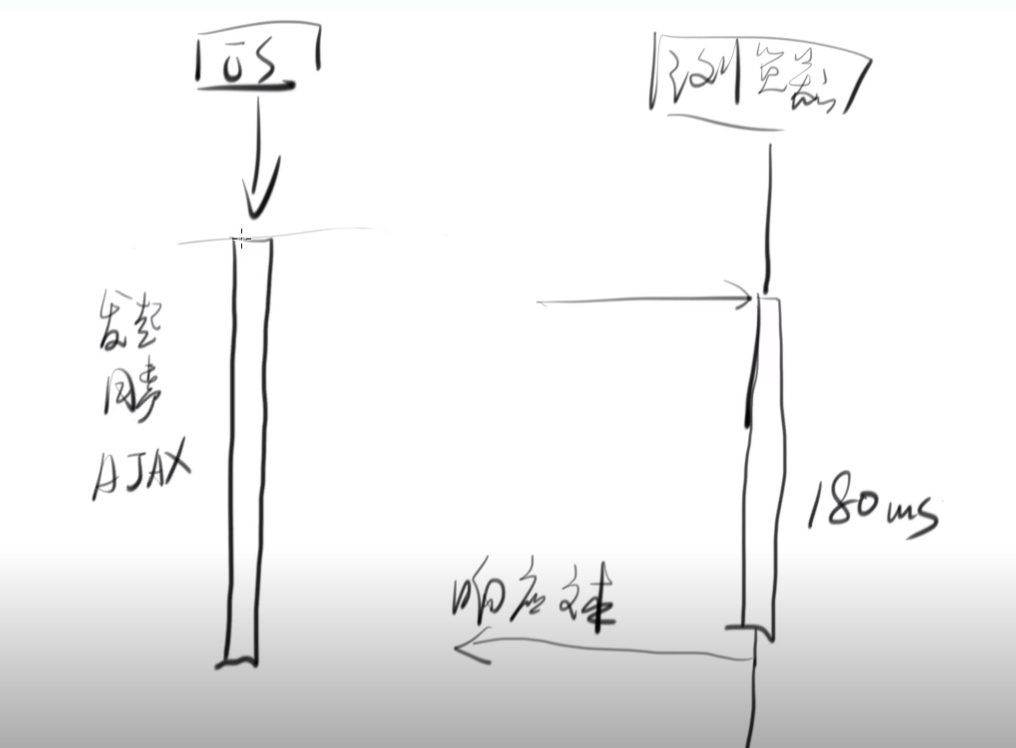 JS
浏览器
发起
同步
AJAX
180ms
响应